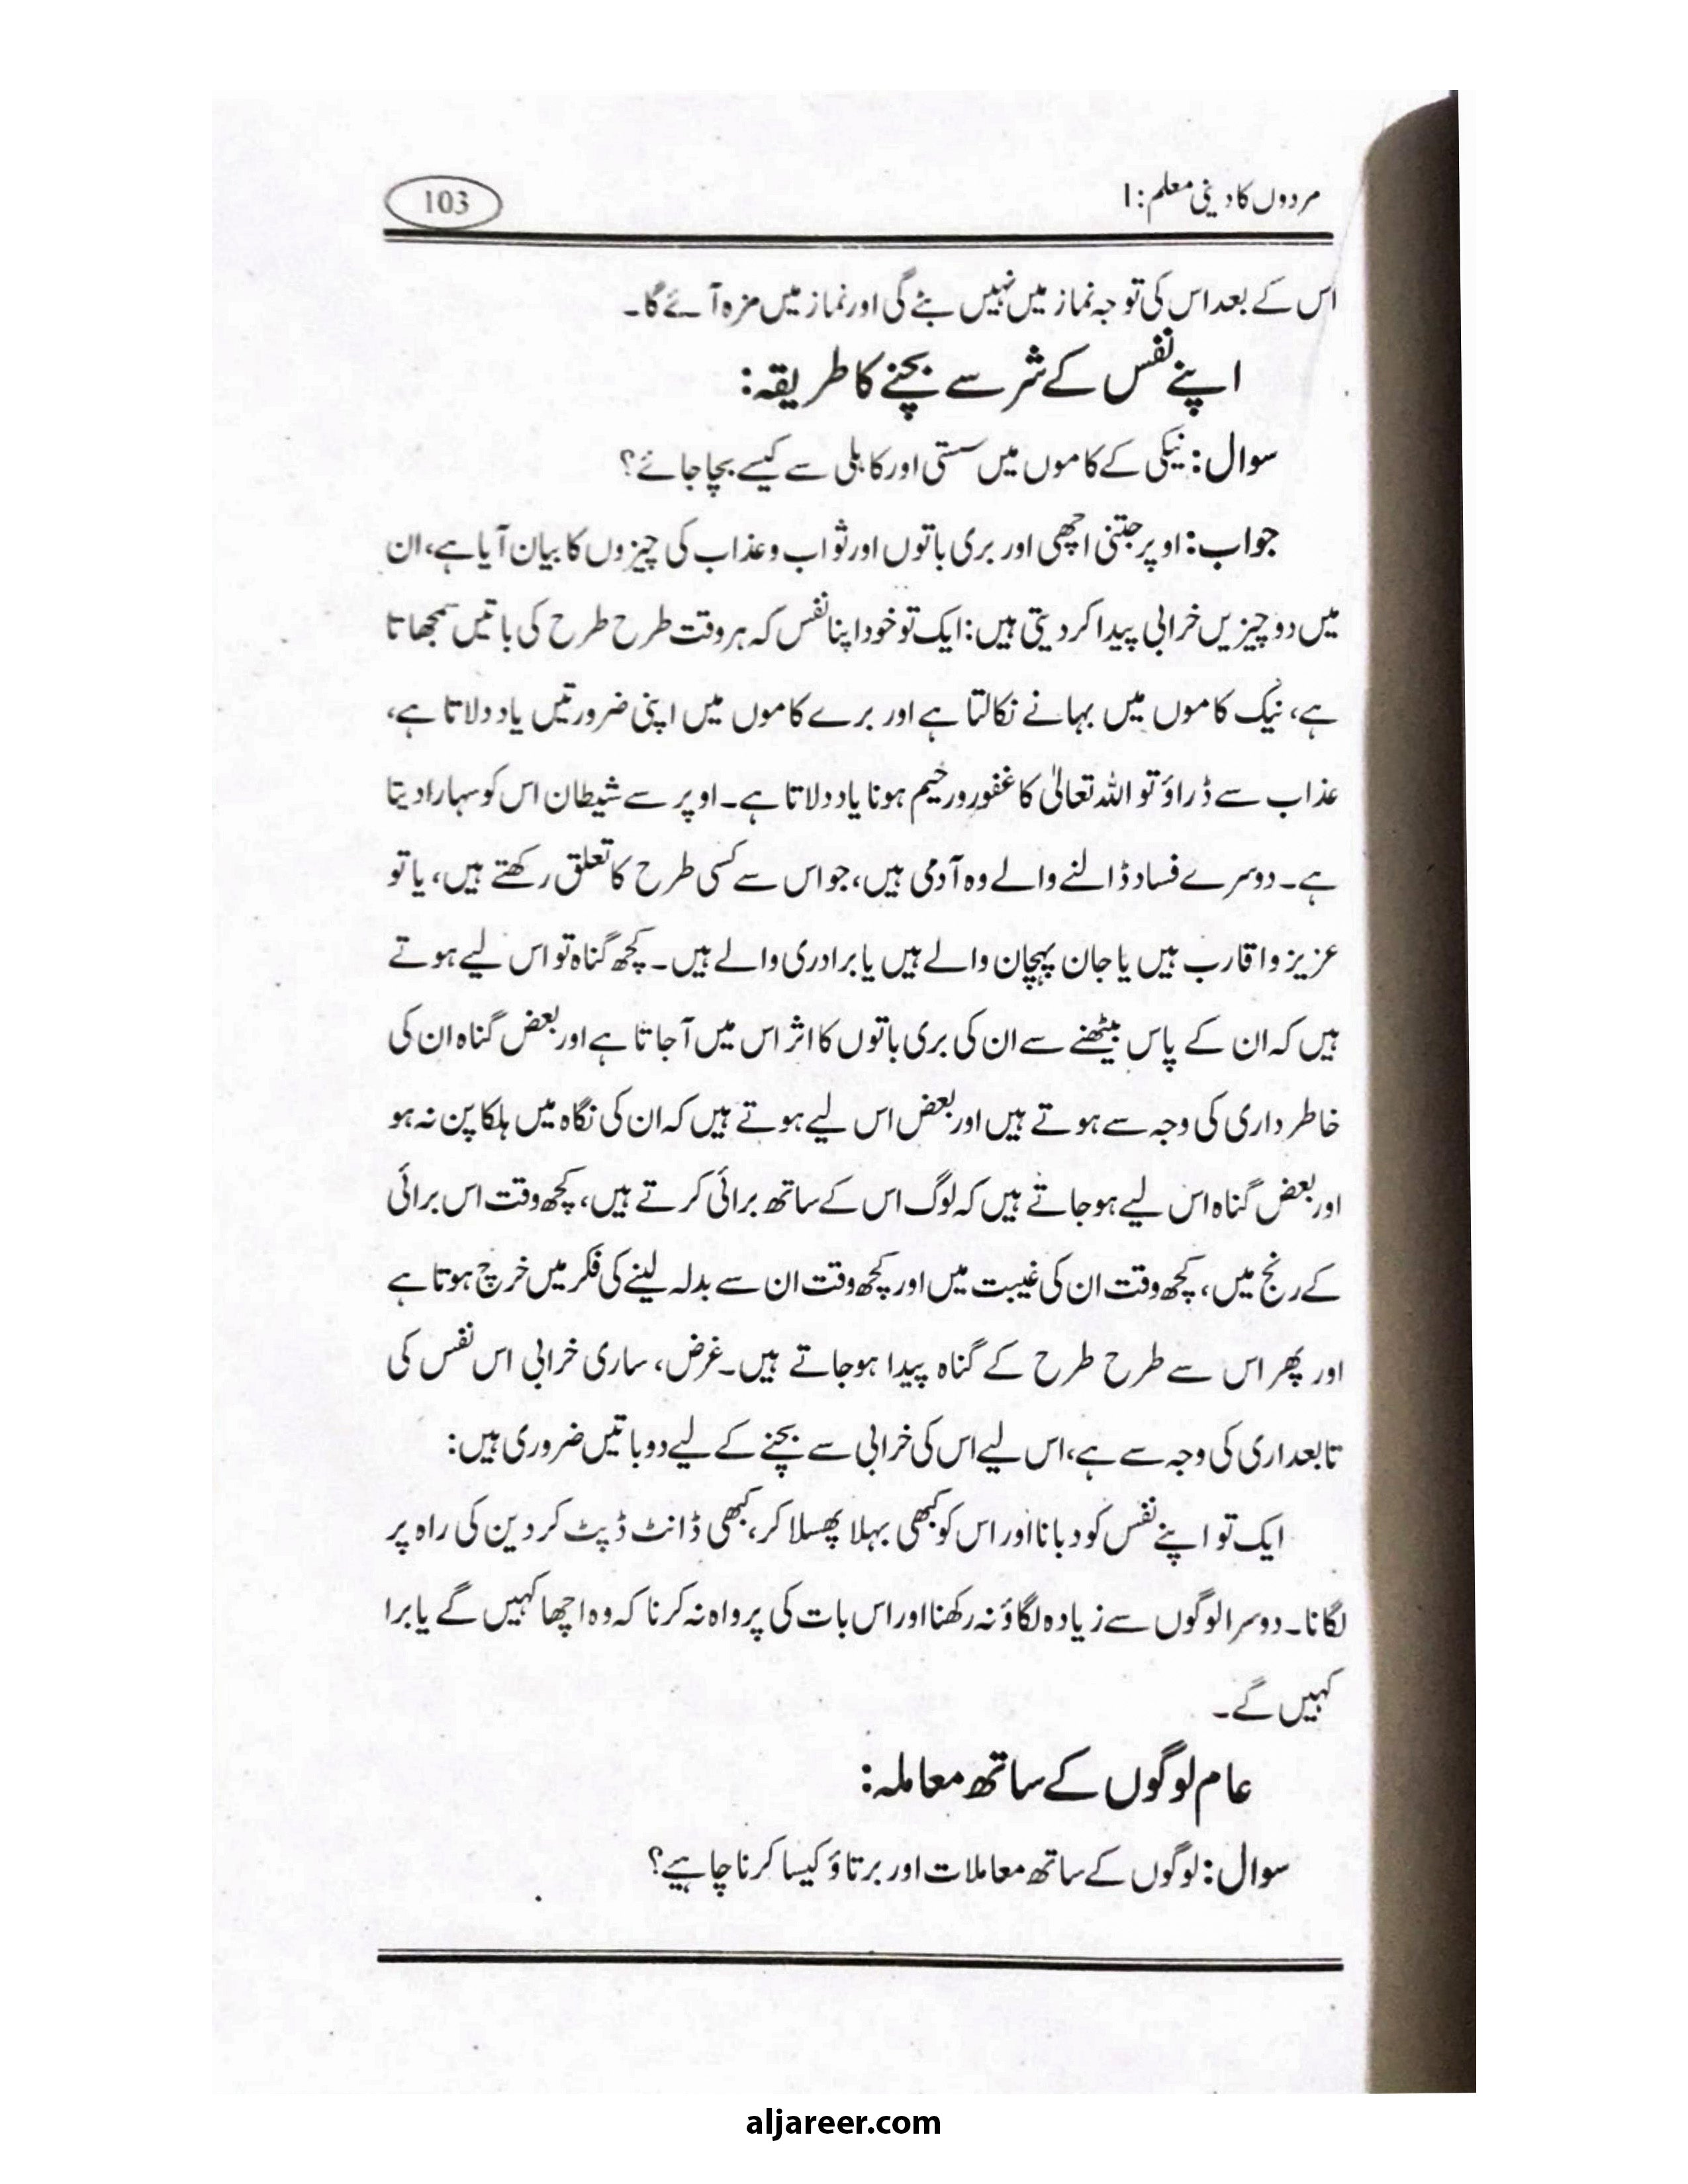 مردوں کا دینی معلم:1
103
اس کے بعد اس کی توجہ نماز میں نہیں بٹے گی اور نماز میں مزہ آئے گا۔
اپنے نفس کے شر سے بچنے کا طریقہ:
سوال: نیکی کے کاموں میں سستی اور کاہلی سے کیسے بچا جائے؟
جواب: اوپر جتنی اچھی اور بری باتوں اور ثواب و عذاب کی چیزوں کا بیان آیا ہے، ان
میں دو چیزیں خرابی پیدا کر دیتی ہیں: ایک تو خود اپنا نفس کہ ہر وقت طرح طرح کی باتیں سمجھاتا
ہے، نیک کاموں میں بہانے نکالتا ہے اور برے کاموں میں اپنی ضرورتیں یاد دلاتا ہے،
عذاب سے ڈراؤ تو اللہ تعالیٰ کا غفور و رحیم ہونا یاد دلاتا ہے۔ اوپر سے شیطان اس کو سہارا دیتا
ہے۔ دوسرے فساد ڈالنے والے وہ آدمی ہیں، جو اس سے کسی طرح کا تعلق رکھتے ہیں، یا تو
عزیز و اقارب ہیں یا جان پہچان والے ہیں یا برادری والے ہیں۔ کچھ گناہ تو اس لیے ہوتے
ہیں کہ ان کے پاس بیٹھنے سے ان کی بری باتوں کا اثر اس میں آ جاتا ہے اور بعض گناہ ان کی
خاطر داری کی وجہ سے ہوتے ہیں اور بعض اس لیے ہوتے ہیں کہ ان کی نگاہ میں ہلکا پن نہ ہو
اور بعض گناہ اس لیے ہو جاتے ہیں کہ لوگ اس کے ساتھ برائی کرتے ہیں، کچھ وقت اس برائی
کے رنج میں، کچھ وقت ان کی غیبت میں اور کچھ وقت ان سے بدلہ لینے کی فکر میں خرچ ہوتا ہے
اور پھر اس سے طرح طرح کے گناہ پیدا ہو جاتے ہیں۔ غرض، ساری خرابی اس نفس کی
تابعداری کی وجہ سے ہے، اس لیے اس کی خرابی سے بچنے کے لیے دو باتیں ضروری ہیں:
ایک تو اپنے نفس کو دبانا اور اس کو کبھی بہلا پھسلا کر، کبھی ڈانٹ ڈپٹ کر دین کی راہ پر
لگانا۔ دوسرا لوگوں سے زیادہ لگاؤ نہ رکھنا اور اس بات کی پرواہ نہ کرنا کہ وہ اچھا کہیں گے یا برا
کہیں گے۔
عام لوگوں کے ساتھ معاملہ:
سوال: لوگوں کے ساتھ معاملات اور برتاؤ کیسا کرنا چاہیے؟
aljareer.com